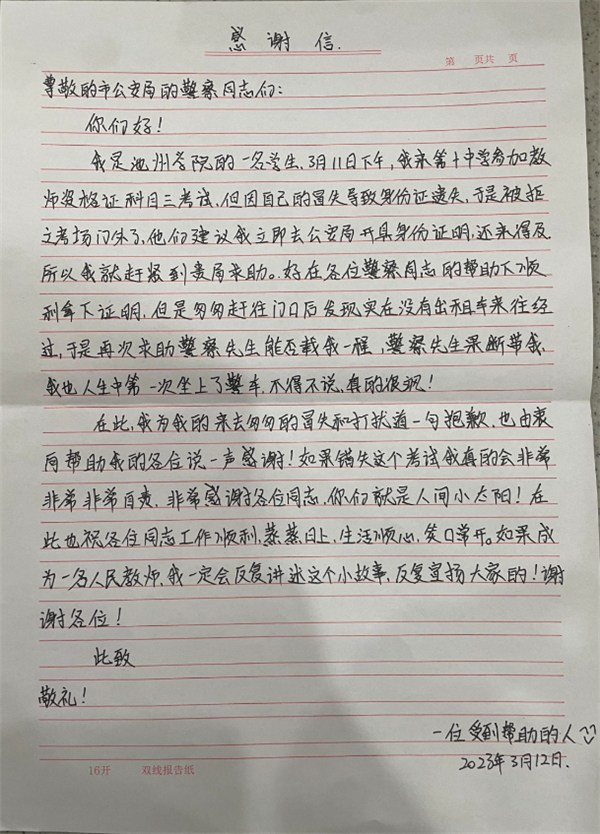 感谢信.
第 页共 页
尊敬的市公安局的警察同志们：
你们好！
我是池州学院的一名学生，3月11日下午，我来第十中学参加教
师资格证科目三考试，但因自己的冒失导致身份证遗失，于是被拒
之考场门外了，他们建议我立即去公安局开具身份证明，还来得及
所以我就赶紧到贵局求助。好在各位警察同志的帮助下顺
利拿下证明，但是匆匆赶往门口后发现实在没有出租车来往经
过，于是再次求助警察先生能否载我一程，警察先生果断带我，
我也人生中第一次坐上了警车，不得不说，真的很飒！
在此，我为我的来去匆匆的冒失和打扰道一句抱歉，也由衷
向帮助我的各位说一声感谢！如果错失这个考试我真的会非常
非常非常自责，非常感谢各位同志，你们就是人间小太阳！在
此也祝各位同志工作顺利，蒸蒸日上，生活顺心，笑口常开。如果成
为一名人民教师，我一定会反复讲述这个小故事，反复宣扬大家的！谢
谢各位！
此致
敬礼！
一位受到帮助的人
2023年3月12日.
16开 双线报告纸